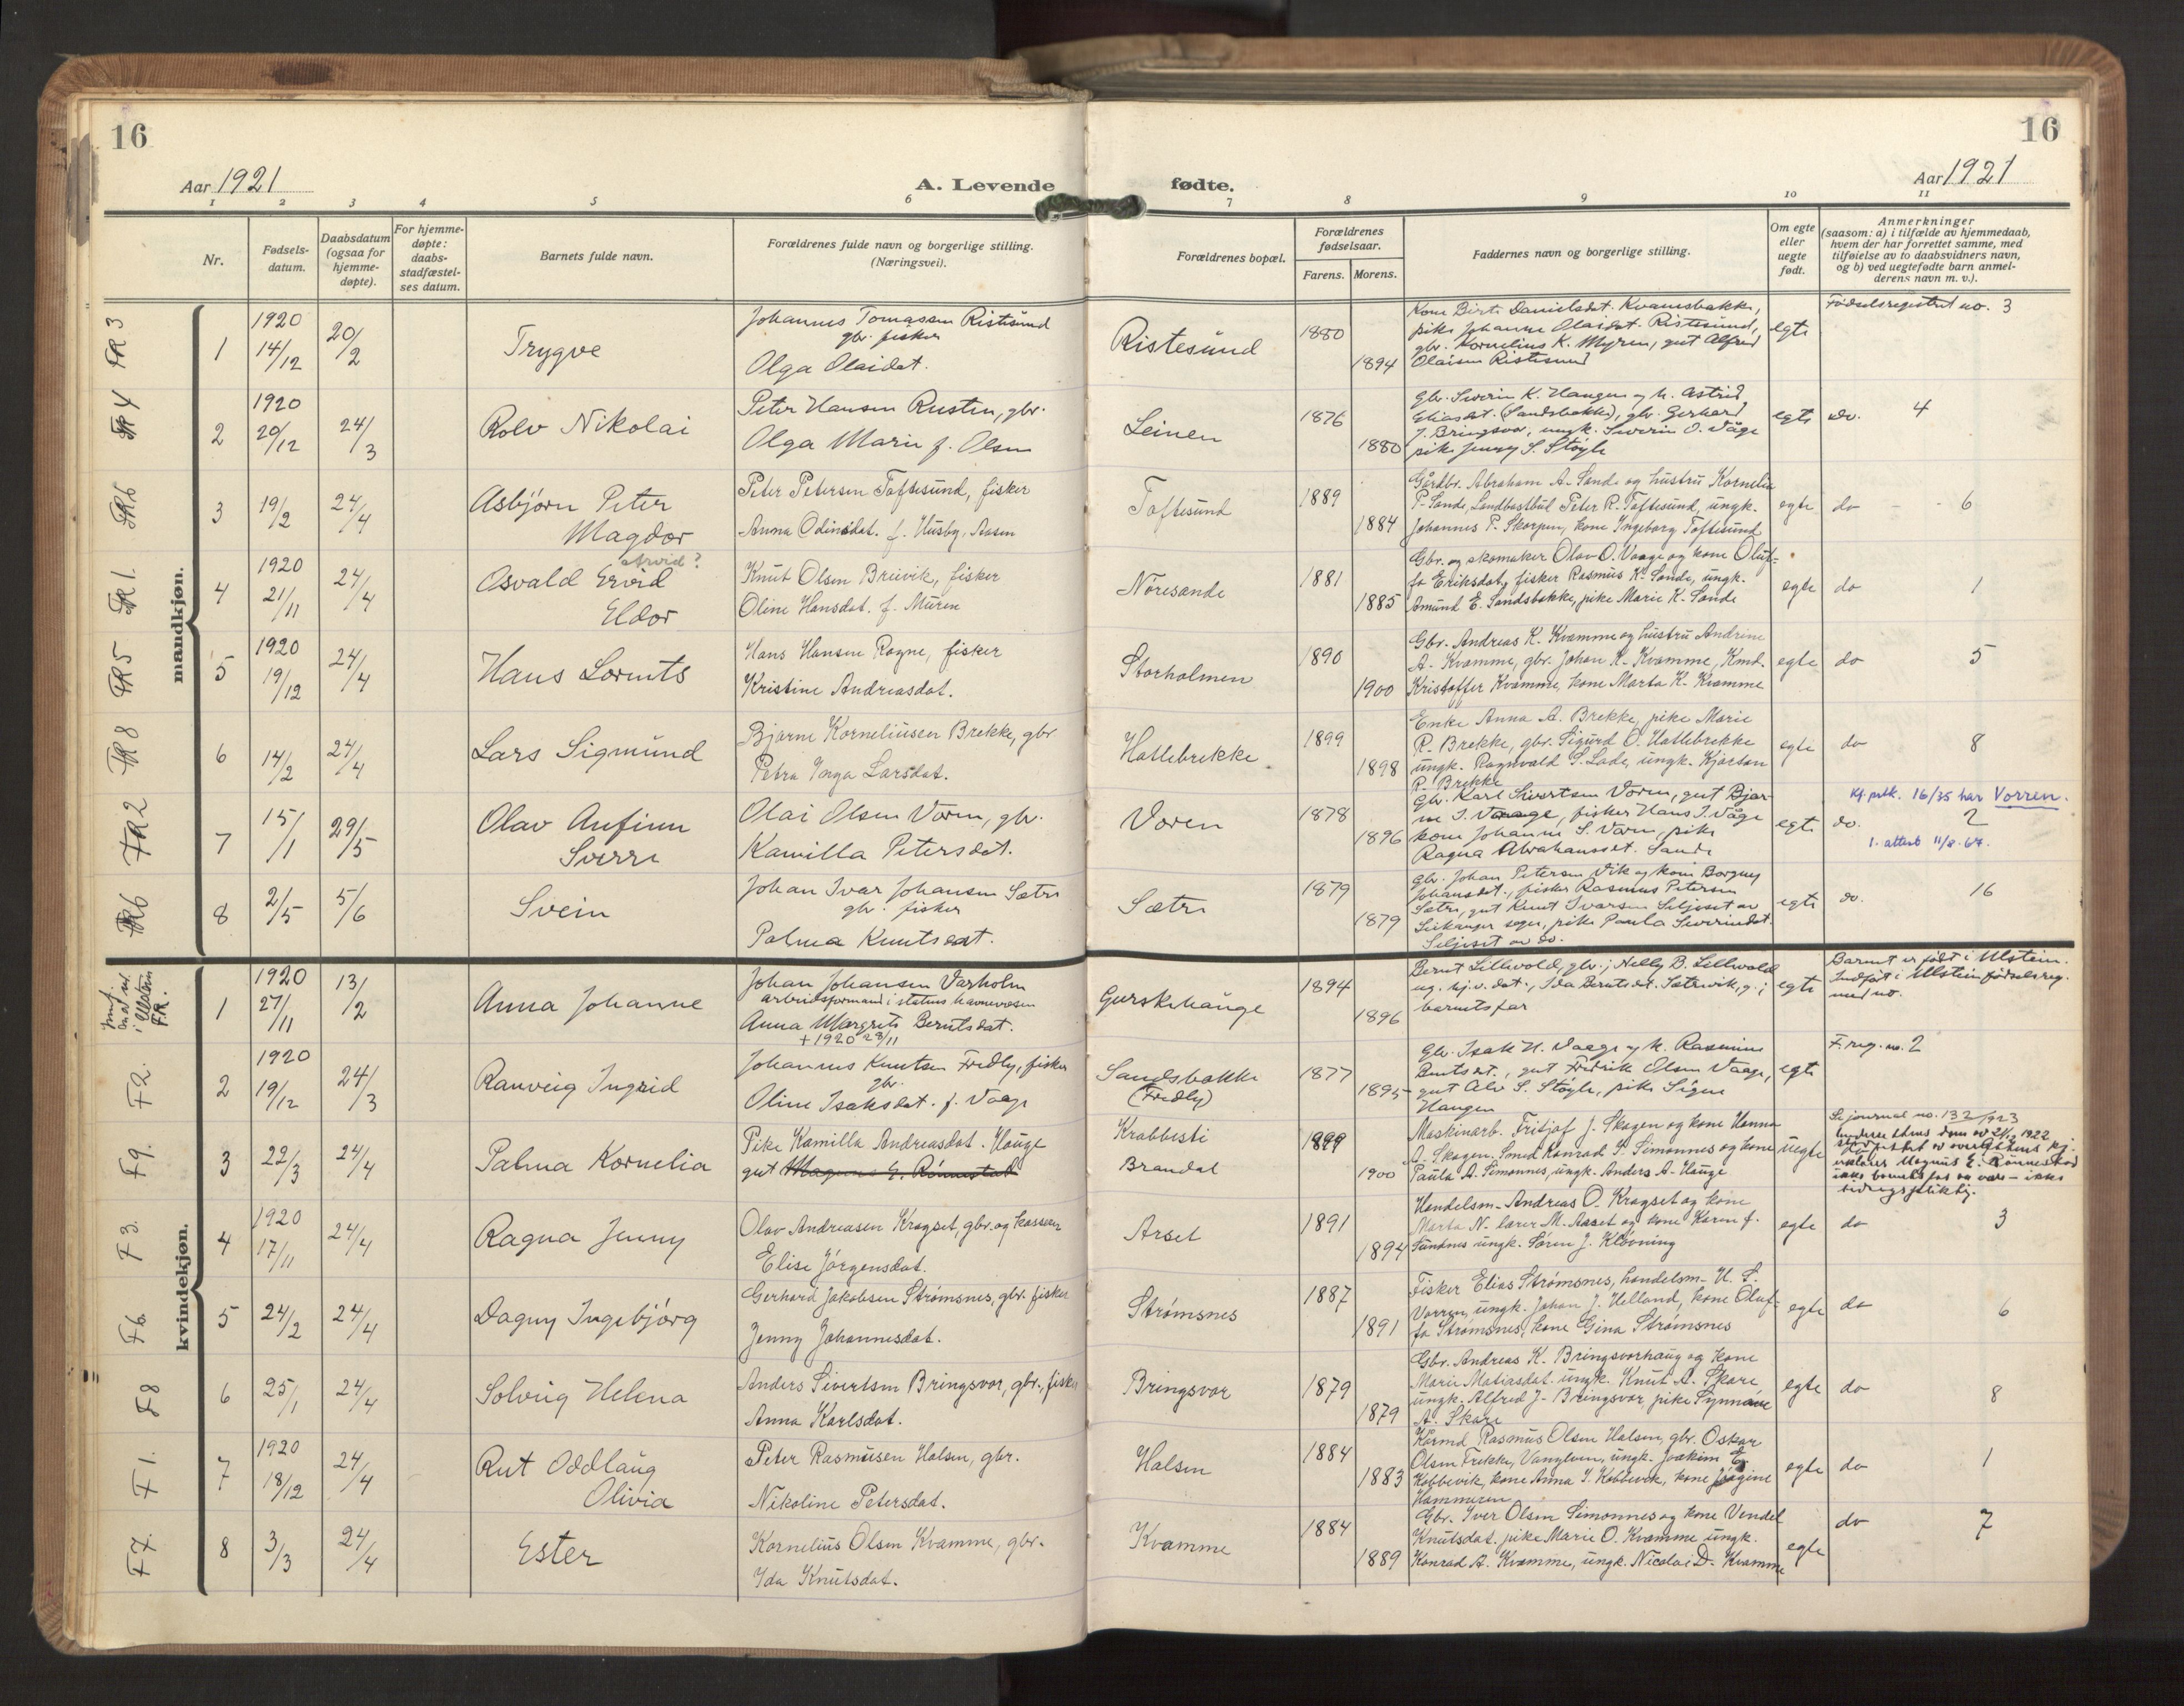 16
16
Aar 1921
A. Levende fødte.
Aar 1921
1 2 3 4 5 6 7 8 9 10 11
Nr.
Fødsels-
datum.
Daabsdatum
(ogsaa for
hjemme-
døpte).
For hjemme-
døpte:
daabs-
stadfæstel-
ses datum.
Barnets fulde navn.
Forældrenes fulde navn og borgerlige stilling.
(Næringsvei).
Forældrenes bopæl.
Forældrenes
fødselsaar.
Farens. Morens.
Faddernes navn og borgerlige stilling.
Om egte
eller
uegte
født.
Anmerkninger
(saasom: a) i tilfælde av hjemmedaab,
hvem der har forrettet samme, med
tilføielse av to daabsvidners navn,
og b) ved uegtefødte barn anmel-
derens navn m. v.).
mandkjøn.
FR 3
1
1920
14/12
20/2
Trygve
Johannes Tomassen Ristesund
gbr. fisker
Olga Olaidat.
Ristesund
1880
1894
Kone Birte Danielsdat. Kvamsbakke,
pike Johanne Olaidat. Ristesund,
gbr. Kornelius K. Myren, gut Alfred
Olaisen Ristesund
egte
Fødselsregistret no. 3
FR 4
2
1920
20/12
24/3
Rolv Nikolai
Peter Hansen Rusten, gbr.
Olga Marie f. Olsen
Leinen
1876
1880
Gbr. Severin K. Haugen og h. Astrid
Eliasdat. (Sandsbakke), gbr. Gerhard
J. Bringsvor, ungk. Severin O. Våge
pike Jenny S. Støyle
egte
do. 4
FR 6
3
19/2
24/4
Asbjørn Peter
Magdor
Peter Petersen Toftesund, fisker
Anna Odinsdat. f. Husby, Aasen
Toftesund
1889
1884
Gårdbr. Abraham A. Sande og hustru Kornelia
P. Sande, Landbastbul Peter R. Toftesund, ungk.
Johannes P. Skorpen, kone Ingeborg Toftesund
egte
do - - 6
FR 1.
4
1920
21/11
24/4
Arvid?
Osvald Ervid
Eldor
Knut Olsen Breivik, fisker
Oline Hansdat. f. Muren
Nøresande
1881
1885
Gbr. og skomaker Olav O. Vaage og kone Oluf-
fa Eriksdat, fisker Rasmus K. Sande, ungk.
Amund E. Sandsbakke, pike Marie K. Sande
egte
do 1
FR 5
5
1920
19/12
24/4
Hans Lorents
Hans Hansen Rogne, fisker
Kristine Andreasdat.
Storholmen
1890
1900
Gbr. Andreas K. Kvamme og hustru Andrine
A. Kvamme, gbr. Johan K. Kvamme, Kmd.
Kristoffer Kvamme, kone Marta K. Kvamme
egte
do 5
FR 8
6
14/2
24/4
Lars Sigmund
Bjarne Korneliussen Brekke, gbr
Petra Inga Larsdat.
Hatlebrekke
1899
1898
Enke Anna A. Brekke, pike Marie
R. Brekke, gbr. Sigurd O. Hatlebrekke
ungk. Ragnvald S. Lade, ungk. Kjartan
R. Brekke
egte
do 8
FR 2
7
15/1
29/5
Olav Anfinn
Sverre
Olai Olsen Voren, gbr.
Kamilla Petersdat.
Voren
1878
1896
Gbr. Karl Sivertsen Voren, gut Bjar-
ne I. Vaage, fisker Hans I. Våge
kone Johanne S. Voren, pike
Ragna Abrahamsdat. Sande
egte
Kf. prtk. 16/35 har Vorren.
do. 2
1. attest 11/8-64.
FR 6
8
2/5
5/6
Svein
Johan Ivar Johansen Sætre
gbr. fisker
Palma Knutsdat.
Sætre
1879
1879
Gbr. Johan Petersen Vik og kone Borgny
Johansdat., fisker Rasmus Petersen
Sætre, gut Knut Ivarsen Seljeset av
sogn, pike Paula Severindat.
Seljeset av do.
egte
do. 16
kvindekjøn.
i Ulstein
F.R.
1
1920
27/11
13/2
Anna Johanne
Johan Johansen Varholm
arbeidsformand i statens havnevæsen
Anna Margrete Berntsdat.
+ 1920 28/11
Gurskehauge
1894
1896
Bernt Lillevold, gbr.; Nelly B. Lillevold
ug. hj.v. dat., Ida Berntsdat. Sætrevik, g.;
barnets far
egte
Barnet er født i Ulstein.
Indført i Ulstein fødselsreg.
med no.
F 2.
2
1920
19/12
24/3
Ranveig Ingrid
Johannes Knutsen Fredly, fisker
gbr.
Oline Isaksdat. f. Vaage
Sandsbakke
(Fredly)
1877
1895
Gbr. Isak H. Vaage og k. Rasmine
Berntsdt., gut Fredrik Olsen Vaage,
gut Alv S. Støyle, pike Signe
Haugen
egte
F. reg. no. 2
F 9.
3
22/3
24/4
Palma Kornelia
Pike Kamilla Andreasdat. Hauge
gut Magnus E. Rønnestad
Krabbesti
Brandal
1899
1900
Maskinarb. Fritjof J. Skagen og kone Hanna
A. Skagen. Smed Konrad S. Simonnes og kone
Paula A. Simonnes, ungk. Anders A. Hauge
uegte
Se journal no. 132/1923
dom av 21/12 1922
erklæres Magnus E. Rønnestad
ikke barnets far og være ikke
bidragspliktig.
F 3.
4
1920
17/11
24/4
Ragna Jenny
Olav Andreasen Kragset, gbr. og kasserer
Elise Jørgensdat.
Arset
1891
1894
Handelsm. Andreas O. Kragset og kone
Marta N. lærer M. Aaset og kone Karen f.
Sundnes ungk. Søren J. Kløvning
egte
do 3
F 6.
5
24/2
24/4
Dagny Ingebjørg
Gerhard Jakobsen Strømsnes, gbr. fisker
Jenny Johannesdat.
Strømsnes
1887
1891
Fisker Elias Strømsnes, handelsm. H. S.
Vorren, ungk. Johan J. Helland, kone Oluf-
fa Strømsnes, kone Gina Strømsnes
egte
do 6
F 8
6
25/1
24/4
Solveig Helena
Anders Sivertsen Bringsvor, gbr., fisker
Anna Karlsdat.
Bringsvor
1879
1879
Gbr. Andreas K. Bringsvorhaug og kone
Marie Matiasdat. ungk. Knut A. Skare
ungk. Alfred J. Bringsvor, pike Synnøve
A. Skare
egte
do 8
F 1.
7
1920
18/12
24/4
Rut Oddlaug
Olivia
Peter Rasmusen Halsen, gbr.
Nikoline Petersdat.
Halsen
1884
1883
Kårmd Rasmus Olsen Halsen, gbr. Oskar
Olsen Frekke, Vanylven, ungk. Joakim E.
Kobbevik, kone Anna S. Kobbevik, kone
Hammeren
egte
do 1
F 7.
8
3/3
24/4
Ester
Kornelius Olsen Kvamme, gbr.
Ida Knutsdat.
Kvamme
1884
1889
Gbr. Iver Olsen Simonnes og kone Vendel
Knutsdat. pike Marie O. Kvamme ungk.
Konrad A. Kvamme, ungk. Nicolai D. Kvamme
egte
do 7